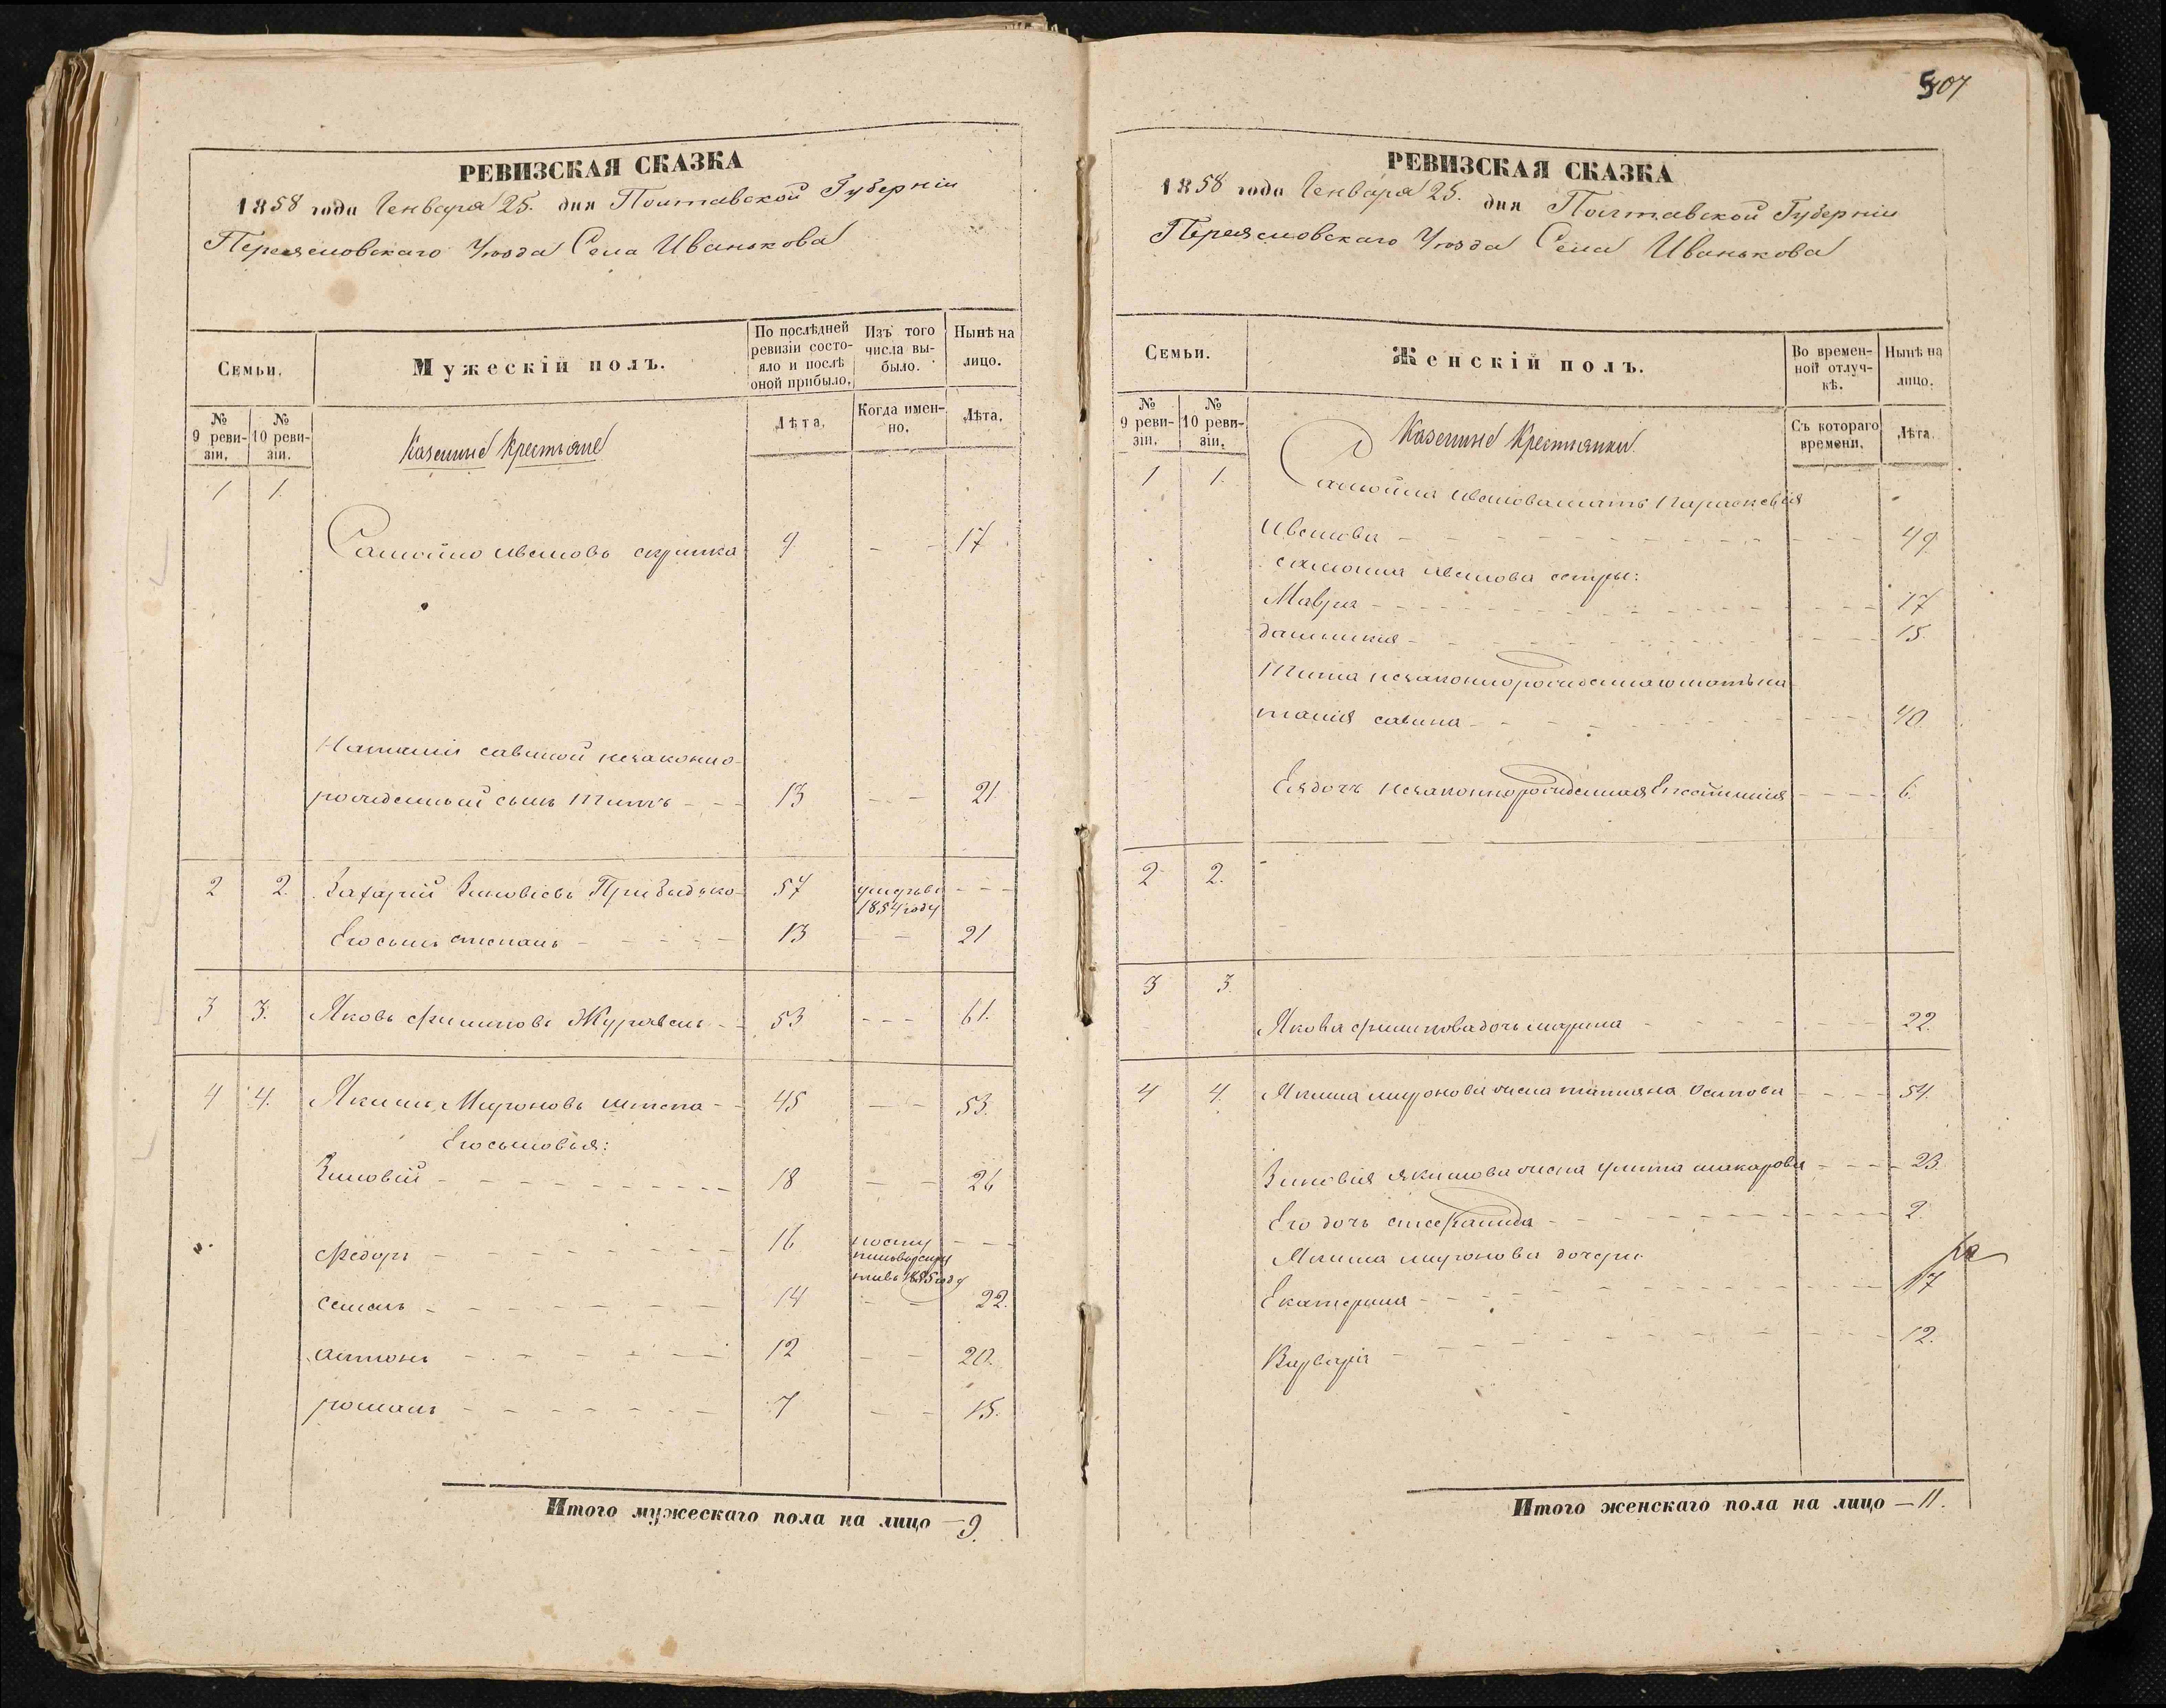 РЕВИЗСКАЯ СКАЗКА
1858 года Генваря 25. дня Полтавской Губерніи
Переясловскаго Уѣзда Села Иванькова
Семьи.
Мужескій полъ.
По послѣдней ревизіи состояло и послѣ оной прибыло.
Изъ того числа выбыло.
Нынѣ на лицо.
№ 9 ревизіи.
№ 10 ревизіи.
Казенные Крестьяне
Лѣта.
Когда именно.
Лѣта.
1 1.
Самойло Ивановъ 9 - - 17
Наталіи савиной незаконно-
рожденный сынъ Титъ - - - 13 - - 21.
2 2. Захарій Зиновіевъ Привидько 57 умеръ въ - - -
1854 году
Его сынъ степанъ - - - - 13 - - 21
3 3. Яковъ филиповъ Журавель - - 53 - - - 61.
4 4. Якимъ Мироновъ - - 45 - - 53.
Его сыновья:
Зиновій - - - - - - - - 18 - - 26
федоръ - - - - - - - 16 - - -
1855 году
семенъ - - - - - - - 14 - - 22.
антонъ - - - - - - 12 - - 20.
романъ - - - - - - - 7 - - 15.
Итого мужескаго пола на лицо — 9.
507
РЕВИЗСКАЯ СКАЗКА
1858 года Генваря 25. дня Полтавской Губерніи
Переясловскаго Уѣзда Села Иванькова
Семьи.
Женскій полъ.
Во временной отлучкѣ.
Нынѣ на лицо.
№ 9 ревизіи.
№ 10 ревизіи.
Казенные Крестьянки
Съ котораго времени.
Лѣта.
1 1. Самойла Иванова мать Параскевія
Иванова - - - - - - - - 49.
самойла иванова сестры:
Мавра - - - - - - - - 17
- - - - - - - 15.
Тита незаконнорожденнаго мать на-
талія савина - - - - - - - 40.
Ея дочь незаконнорожденная - - - - 6.
2 2.
3 3.
Якова филипова дочь марина - - - - - 22.
4 4. Якима миронова жена татьяна Осипова - - - - 54.
Зиновія якимова жена улита макарова - - - - 23.
Его дочь - - - - - - - - 2.
Якима миронова дочери:
Екатерина - - - - - - - - 17
Варвара - - - - - - - - 12.
Итого женскаго пола на лицо — 11.